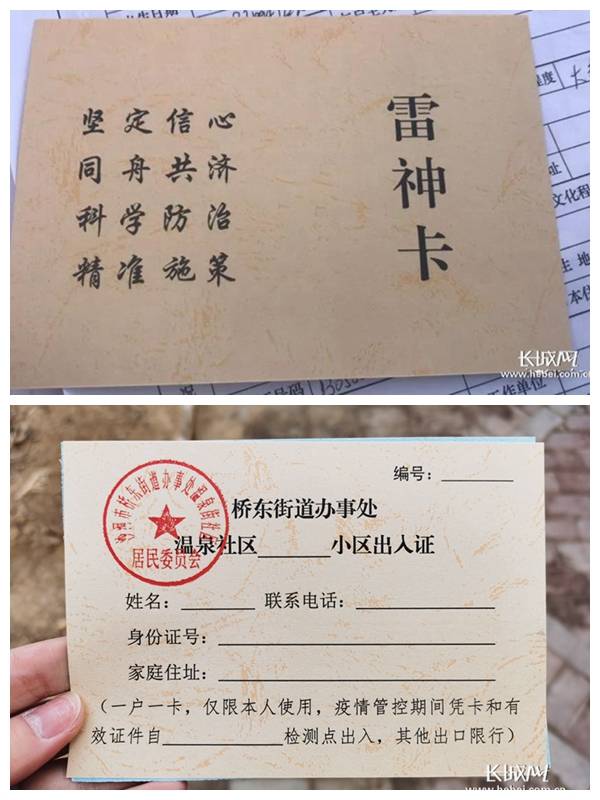 坚定信心
同舟共济
科学防治
精准施策
雷神卡
长城网
www.hebei.com.cn
编号：
桥东街道办事处
温泉社区________小区出入证
居民委员会
姓名：________ 联系电话：________
身份证号：________
家庭住址：________
（一户一卡，仅限本人使用，疫情管控期间凭卡和有
效证件自________检测点出入，其他出口限行）
长城网
www.hebei.com.cn